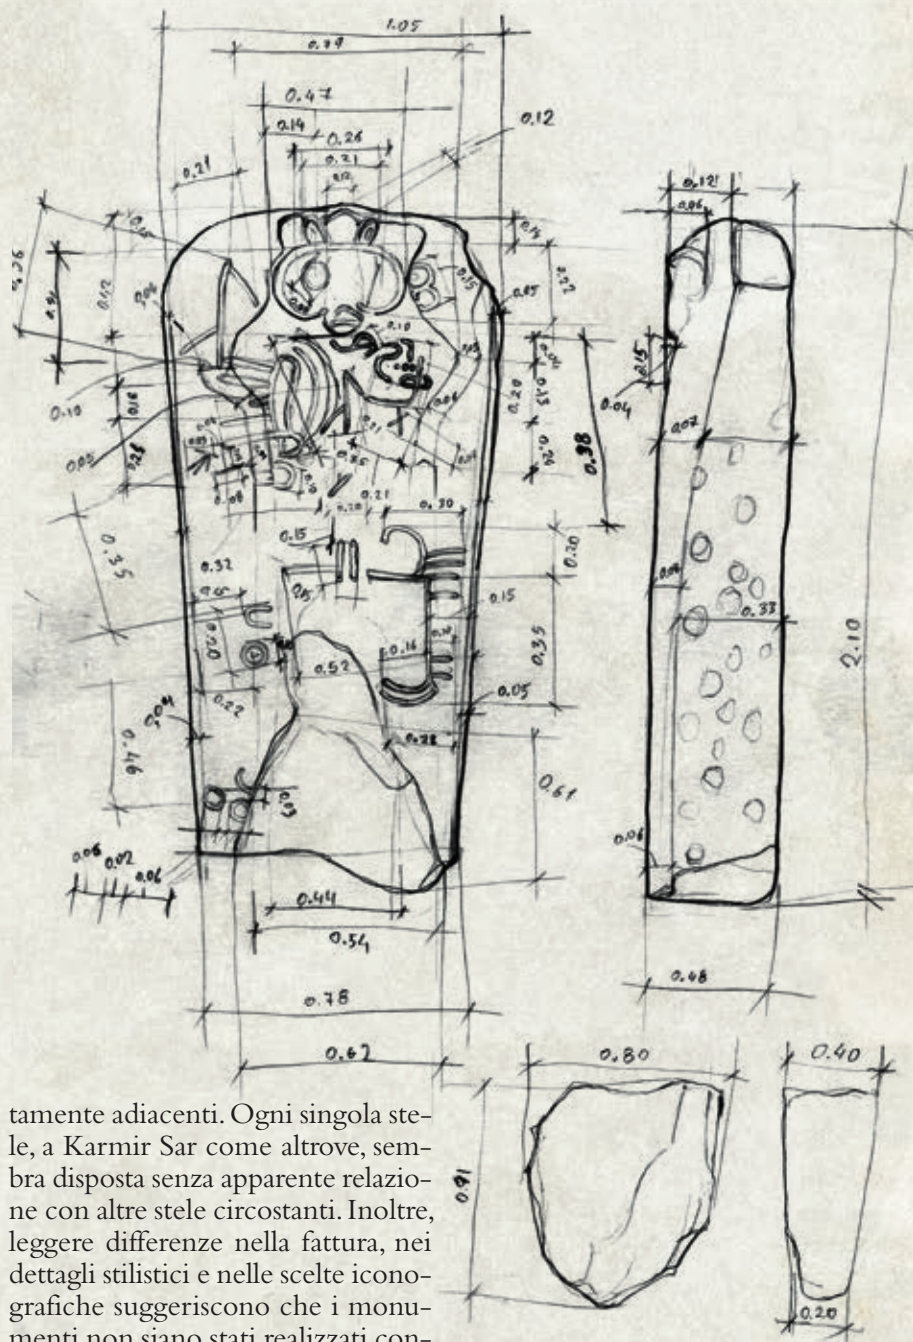 1.05
0.79
0.47
0.14
0.26
0.12
0.21
0.21
0.12
0.06
0.14
0.22
0.05
0.10
0.15
0.20
0.04
0.10
0.05
0.24
0.38
0.07
0.08
0.21
0.30
0.15
0.20
0.35
0.32
0.15
0.33
2.10
0.20
0.16
0.52
0.35
0.22
0.05
0.04
0.28
0.46
0.61
0.03
0.06
0.06
0.02
0.06
0.44
0.54
0.48
0.78
0.62
0.80
0.40
0.91
0.20
tamente adiacenti. Ogni singola ste-
le, a Karmir Sar come altrove, sem-
bra disposta senza apparente relazio-
ne con altre stele circostanti. Inoltre,
leggere differenze nella fattura, nei
dettagli stilistici e nelle scelte icono-
grafiche suggeriscono che i monu-
menti non siano stati realizzati con-